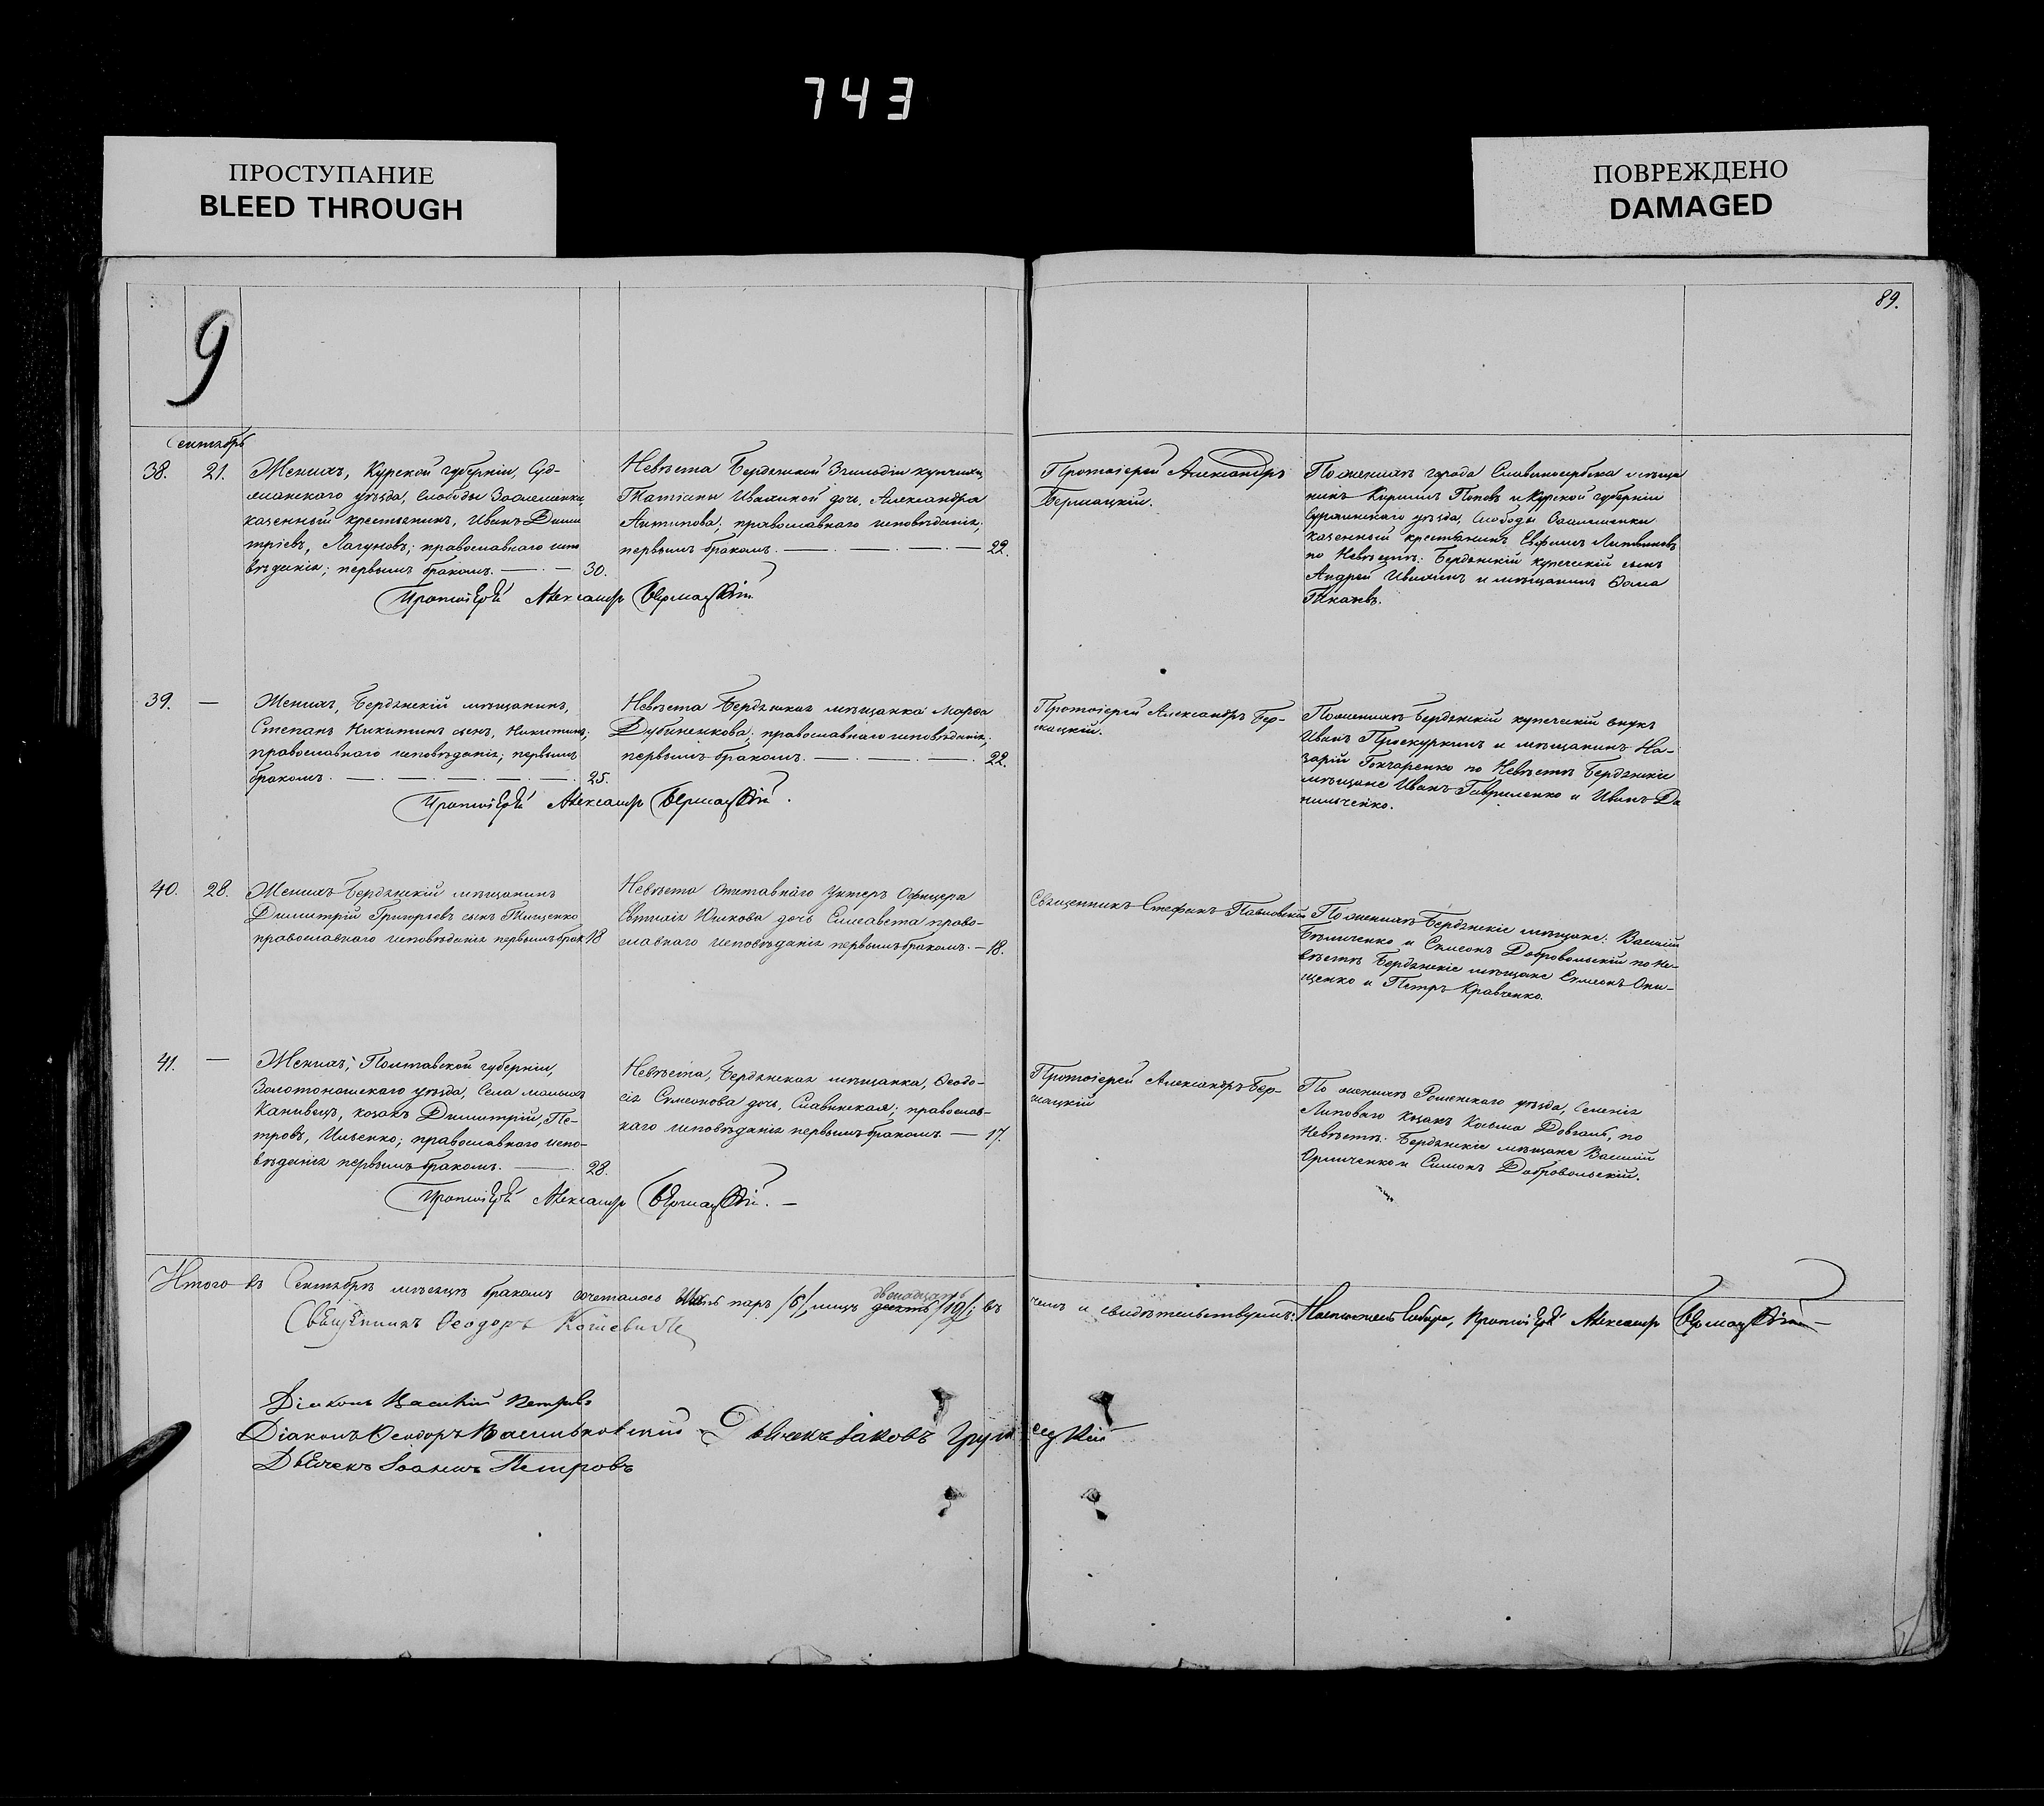 743
ПРОСТУПАНИЕ
BLEED THROUGH
ПОВРЕЖДЕНО
DAMAGED
89.
9
Сентябрь
38. 21. Женихъ, Курской губерніи, Суд-
жанскаго уѣзда, Слободы
казенный крестьянинъ, Иванъ Дими
тріевъ, Лагуновъ; православнаго испо
вѣданія; первымъ бракомъ. — 30.
Невѣста Бердянской 3 гильдіи купчихи,
Татіаны Ивашиной дочь, Александра
Антипова; православнаго исповѣданія;
первымъ бракомъ. — 22.
Протоіерей Александръ
Бермацкій.
По женихѣ города Славяносербска мѣща
нинъ Кириллъ Поповъ и Курской губерніи
уѣзда, Слободы
казенный крестьянинъ Евфимъ Литвиновъ
по Невѣстѣ: Бердянскій купеческій сынъ
Андрей Ивашинъ и мѣщанинъ Фома
Ткачевъ.
Протоіерей Александръ Бермацкій
39. — Женихъ, Бердянскій мѣщанинъ,
Степанъ Никитинъ сынъ, Никитинъ;
православнаго исповѣданія; первымъ
бракомъ. — 25.
Невѣста Бердянская мѣщанка Марфа
Дубиненкова; православнаго исповѣданія;
первымъ бракомъ. — 22.
Протоіерей Александръ Бер-
мацкій.
По женихѣ Бердянскій купеческій внукъ
Иванъ Проскурнинъ и мѣщанинъ На-
зарій Гончаренко по Невѣстѣ Бердянскіе
мѣщане Иванъ Гавриленко и Иванъ Да
нильченко.
Протоіерей Александръ Бермацкій.
40. 28. Женихъ Бердянскій мѣщанинъ
Димитрій Григорьевъ сынъ Тищенко
православнаго исповѣданія первымъ брак 18
Невѣста отставнаго Унтеръ Офицера
Юшкова дочь Елисавета право-
славнаго исповѣданія первымъ бракомъ. — 18.
Священникъ Стефанъ Павловскій
По женихѣ Бердянскіе мѣщане: Василій
и Симеонъ Добровольскій по Не-
вѣстѣ Бердянскіе мѣщане Симеонъ Они-
щенко и Петръ Кравченко.
41. — Женихъ, Полтавской губерніи,
Золотоношскаго уѣзда, Села малыхъ
Канивецъ, козакъ Димитрій, Пе-
тровъ, Ильенко; православнаго испо-
вѣданія первымъ бракомъ. — 28.
Невѣста, Бердянская мѣщанка, Ѳеодо-
сія Симеонова дочь, Славинская; православ-
наго исповѣданія первымъ бракомъ. — 17.
Протоіерей Александръ Бер-
мацкій
По женихѣ Роменскаго уѣзда, Селенія
Липоваго козакъ Косьма Довгаль, по
Невѣстѣ: Бердянскіе мѣщане Василій
и Симонъ Добровольскій.
Протоіерей Александръ Бермацкій. —
двенадцать
Итого въ Сентябрѣ мѣсяцѣ бракомъ сочеталось Шесть паръ /6/, лицъ /12/; въ чемъ и свидѣтельствуемъ: Настоятель Собора, Протоіерей Александръ Бермацкій —
Священникъ Ѳеодоръ
Діаконъ Василій Петровъ
Діаконъ Ѳеодоръ Васильковскій Дьячекъ Іаковъ
Дьячекъ Іоаннъ Петровъ